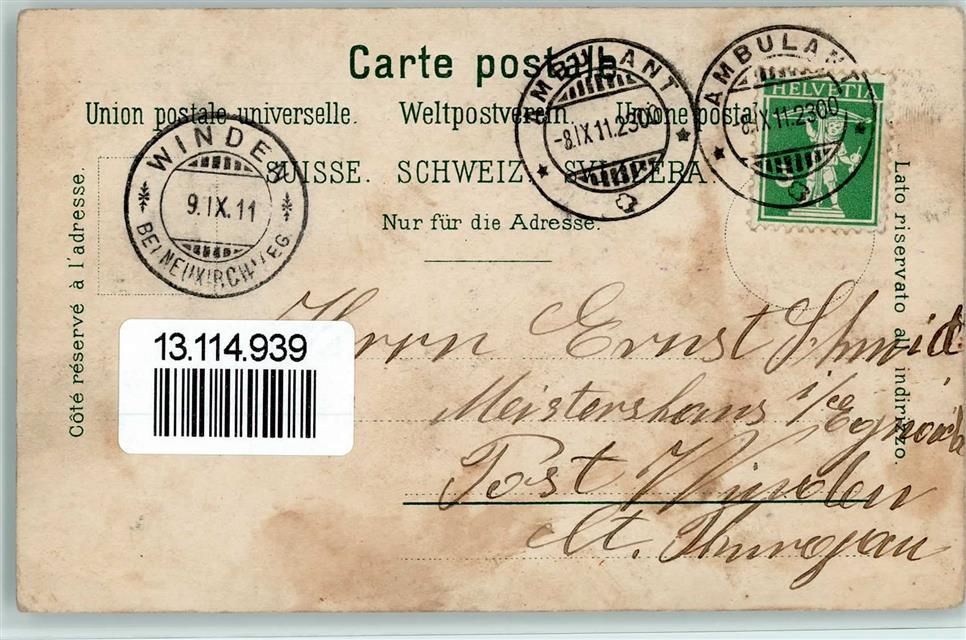 Carte postale
Union postale universelle. Weltpostverein. Unione postale
SUISSE. SCHWEIZ. SVIZZERA.
Nur für die Adresse.
Côté réservé à l'adresse.
Lato riservato all indirizzo.
AMBULANT
-8.IX.11.2300
AMBULANT
-8.IX.11.2300
HELVETIA
WINDEN
9.IX.11
BEI NEUKIRCH-EG.
13.114.939
Herrn Ernst Schmid
Meistershaus i/e Egnach
Post Winden
Ct. Thurgau